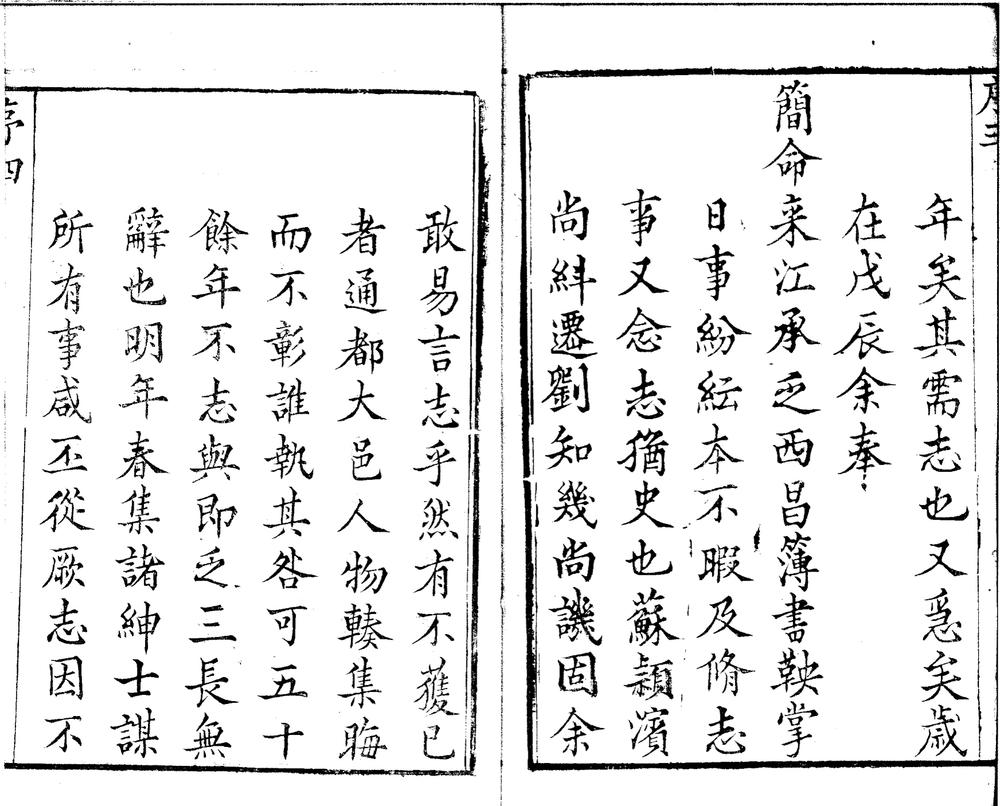 序三
年矣其需志也又爲矣歲
在戊辰余奉
簡命来江承乏西昌簿書鞅掌
日事紛紜本不暇及脩志
事又念志猶史也蘇潁濱
尚紏遷劉知幾尚譏固余
敢易言志乎然有不獲已
者通都大邑人物輳集晦
而不彰誰執其咎可五十
餘年不志與即乏三長無
辭也明年春集諸紳士謀
所有事咸丕從厥志因不
序四